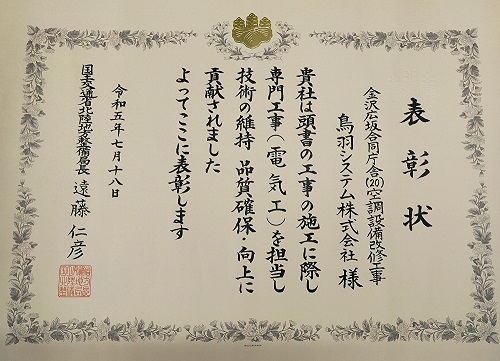 表彰状
金沢広坂合同庁舎(20)空調設備改修工事
鳥羽システム株式会社 様
貴社は頭書の工事の施工に際し
専門工事(電気工)を担当し
技術の維持 品質確保・向上に
貢献されました
よってここに表彰します
令和五年七月十八日
国土交通省北陸地方整備局長 遠藤 仁彦